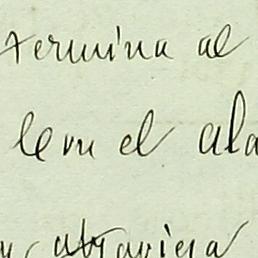 termina al
lem el ala
atraviesa